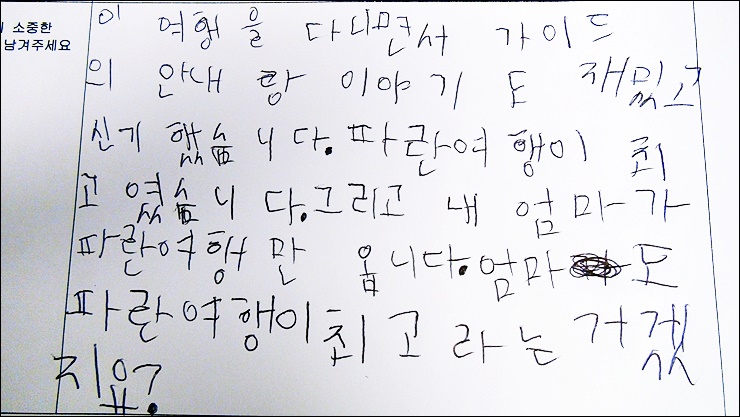 소중한
남겨주세요
이 여행을 다니면서 가이드
의 안내 랑 이야기 도 재밌고
신기 했습니다. 파란여행이 최
고 였습니다. 그리고 내 엄마가
파란여행 만 옵니다. 엄마 도
파란여행이 최고 라는 거겠
지요?